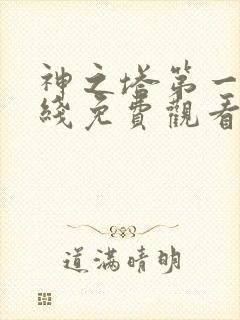 神之塔第一
綫免費觀看
道滿晴明